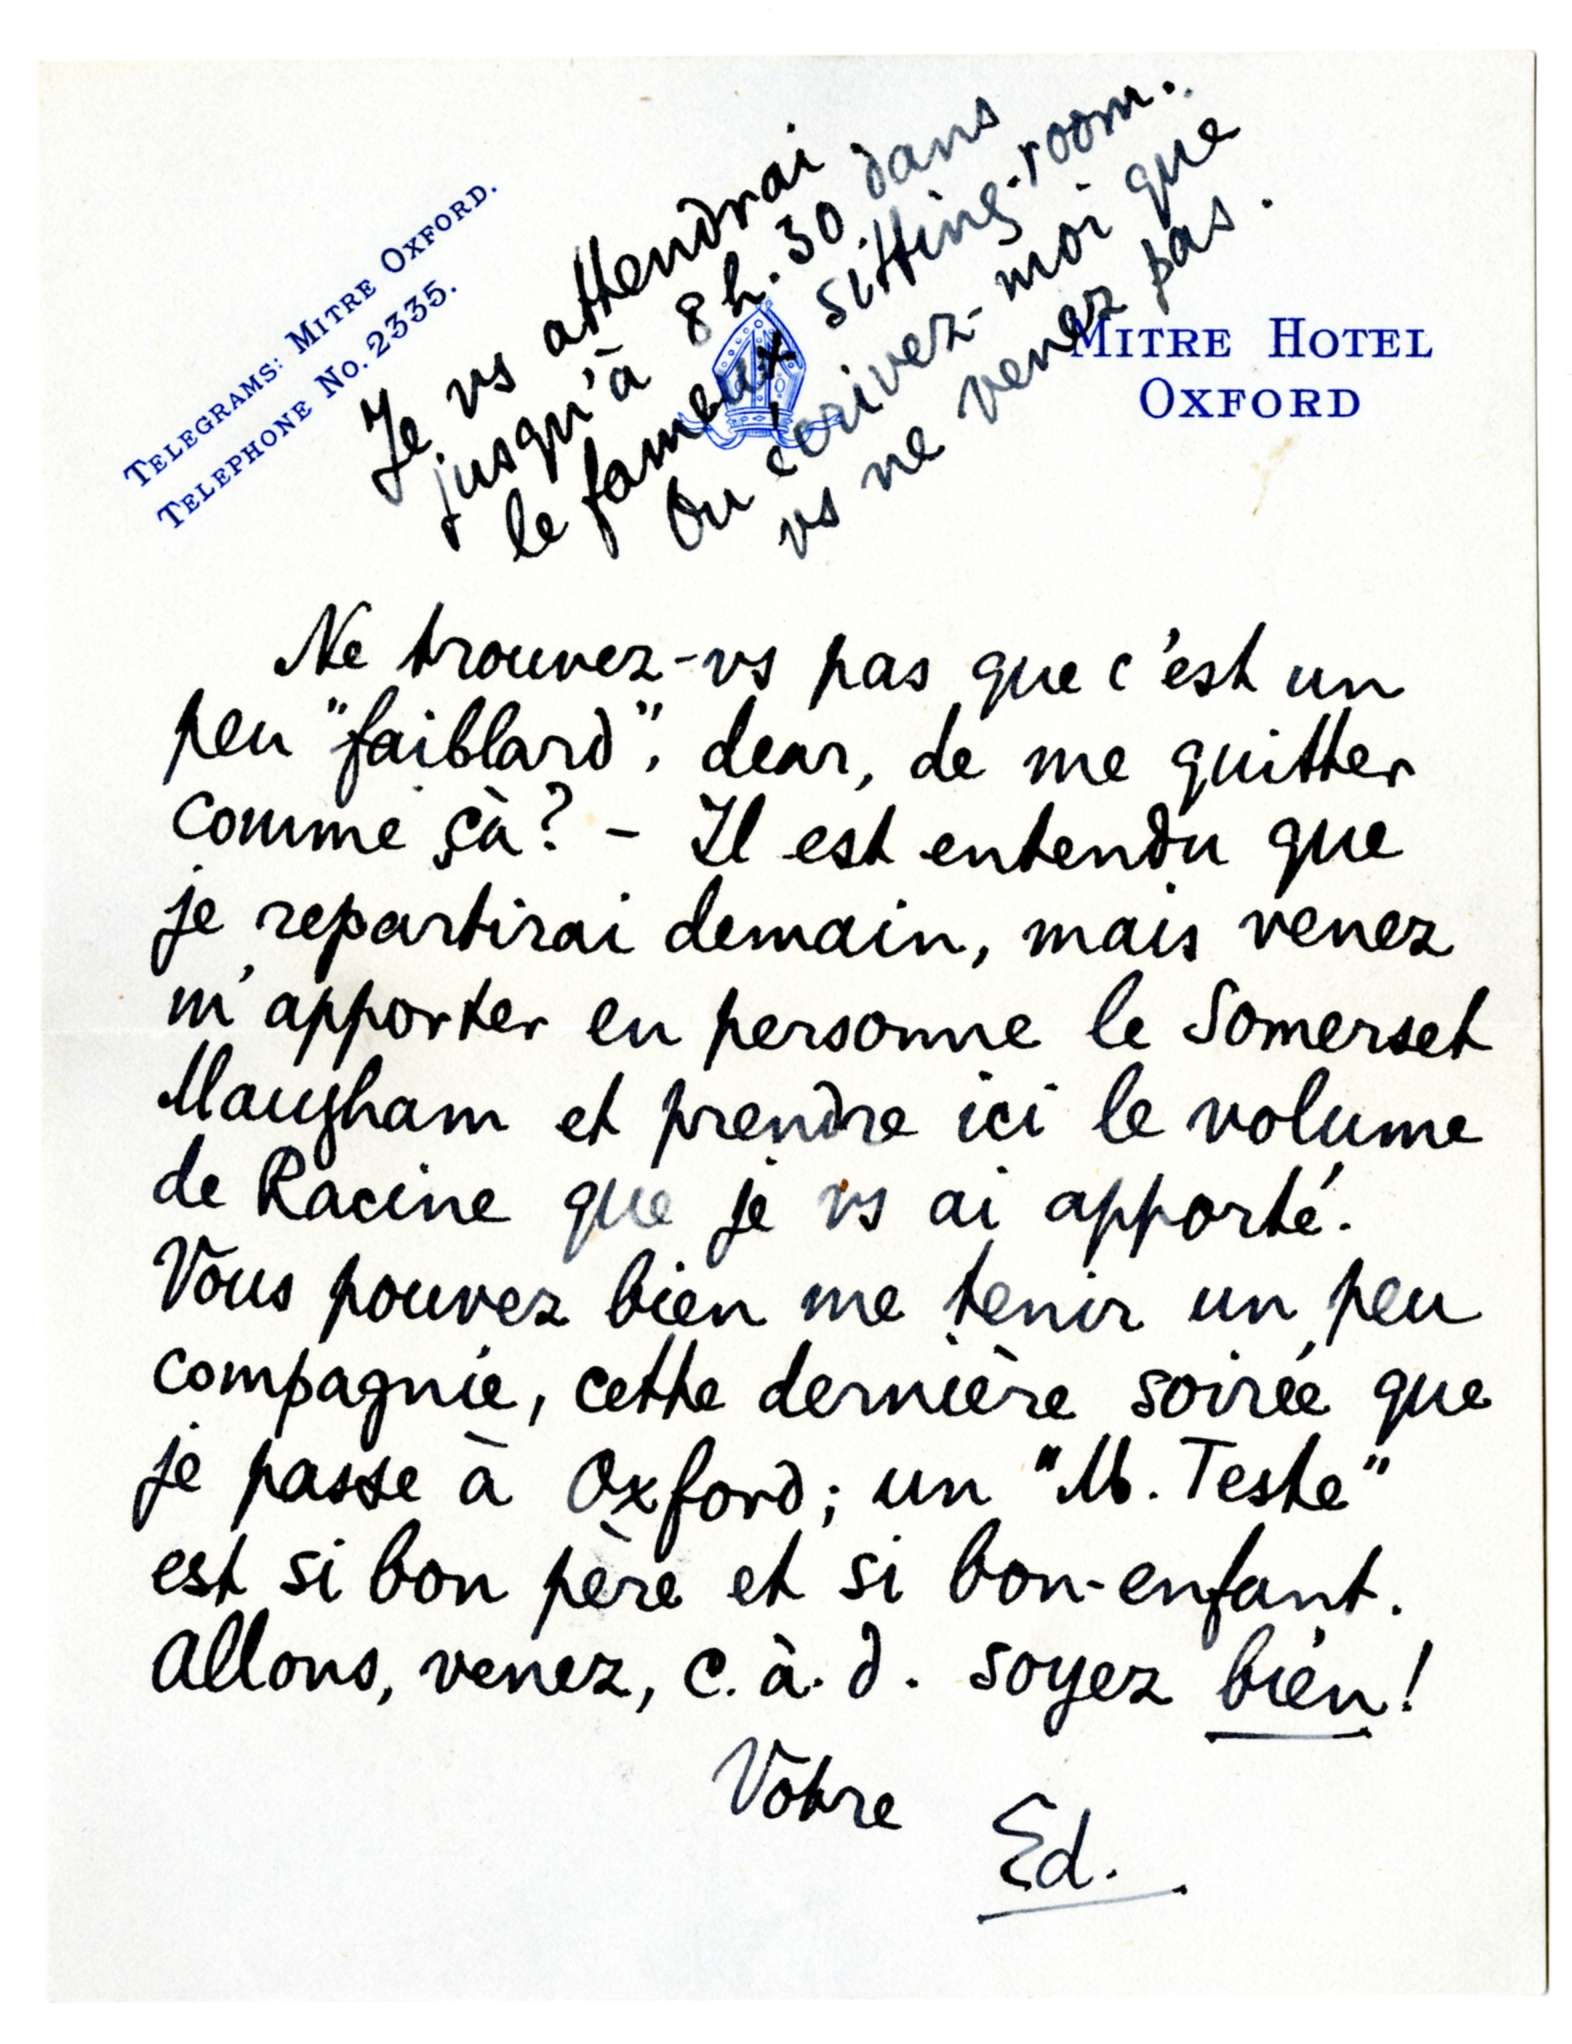 TELEGRAMS: MITRE OXFORD.
TELEPHONE NO. 2335.
MITRE HOTEL
OXFORD
Je vs attendrai
jusqu'à 8h.30 dans
le fameux sitting-room.
Ou écrivez-moi que
vs ne venez pas.
Ne trouvez-vs pas que c'est un
peu "faiblard", dear, de me quitter
comme çà? - Il est entendu que
je repartirai demain, mais venez
m'apporter en personne le Somerset
Maugham et prendre ici le volume
de Racine que je vs ai apporté.
Vous pouvez bien me tenir un peu
compagnie, cette dernière soirée que
je passe à Oxford; un "M. Teste"
est si bon père et si bon-enfant.
Allons, venez, c.à.d. soyez bien!
Votre
Ed.